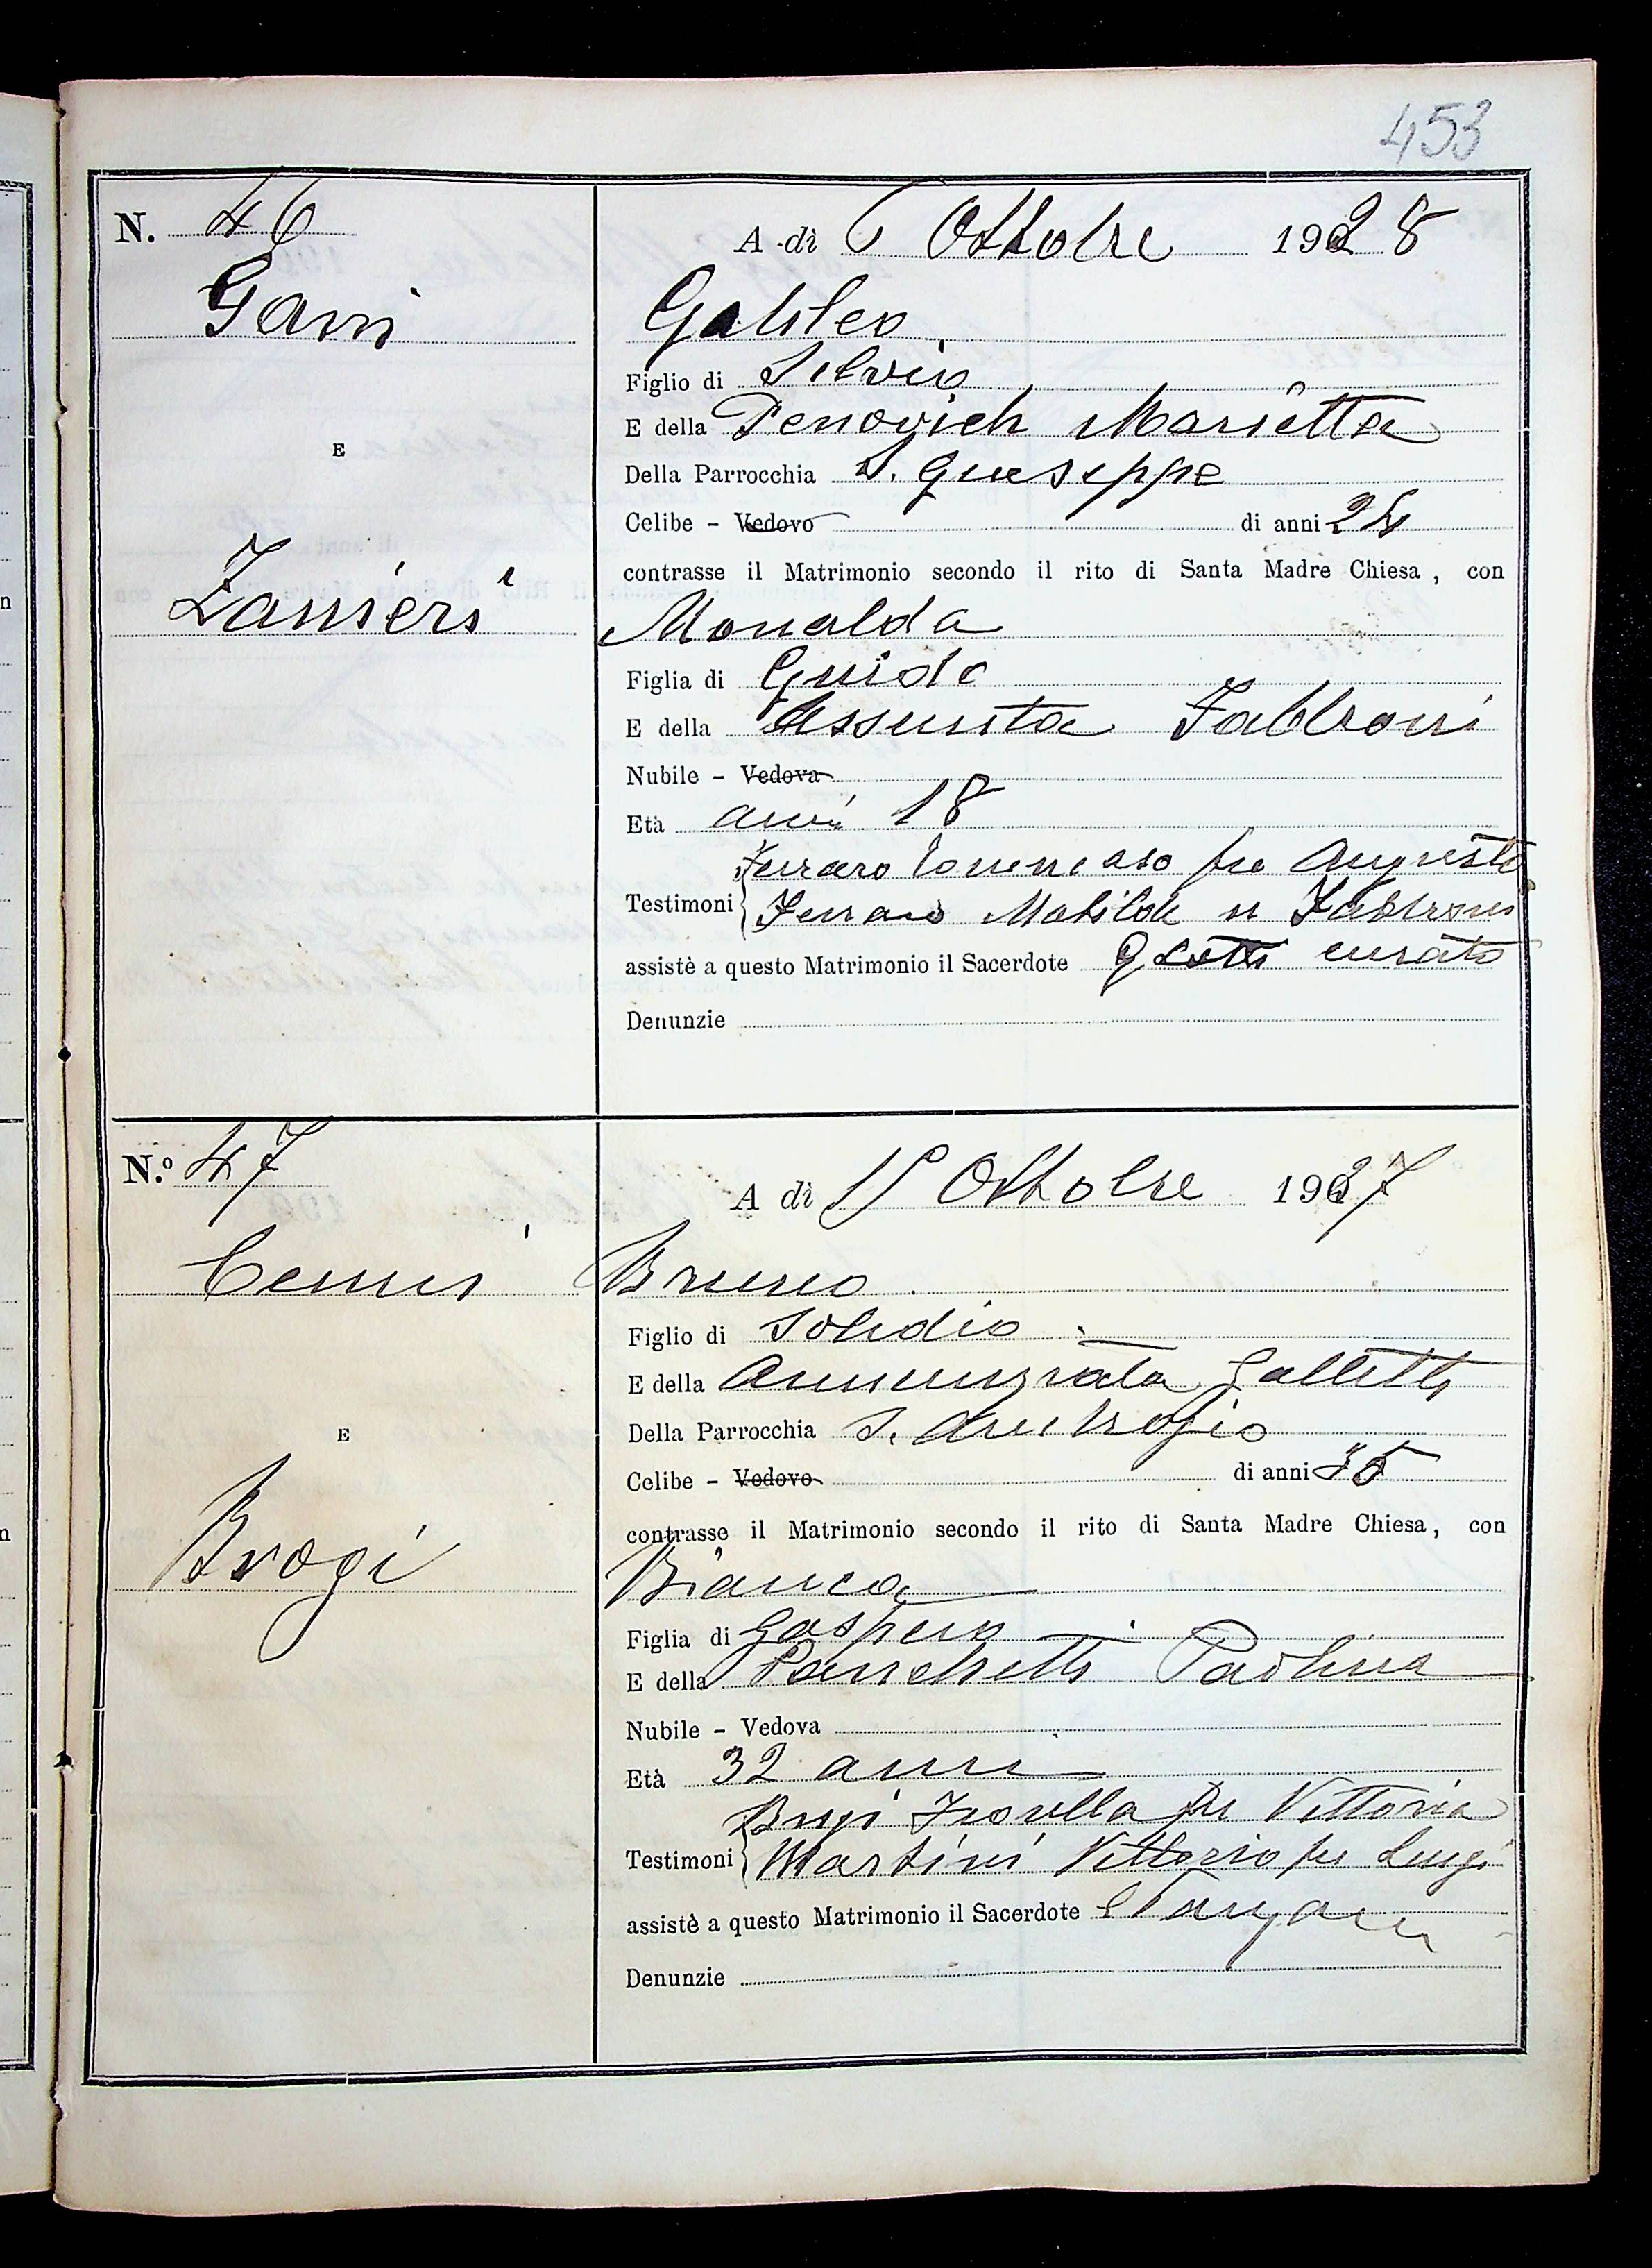 453
N. 46
A dì 6 Ottobre 1928
Gavi
Galileo
Figlio di Silvio
E della Penovich Marietta
E
Della Parrocchia S. Giuseppe
Celibe - Vedovo di anni 24
contrasse il Matrimonio secondo il rito di Santa Madre Chiesa, con
Zanieri
Monalda
Figlia di Guido
E della Assunta Fabbroni
Nubile - Vedova
Età anni 18
Ferraro Tommaso fu Augusto
Testimoni Ferraro Matilde n Fabbroni
assistè a questo Matrimonio il Sacerdote curato
Denunzie
N.º 47
A dì 15 Ottobre 1927
Cenni
Bruno
Figlio di Solidio
E della Annunziata Galletti
Della Parrocchia S. Ambrogio
E
Celibe - Vedovo di anni 35
contrasse il Matrimonio secondo il rito di Santa Madre Chiesa, con
Brogi
Bianca
Figlia di Gaspero
E della Panchetti Paolina
Nubile - Vedova
Età 32 anni
Brogi fu Vittorio
Testimoni Martini Vittorio fu Luigi
assistè a questo Matrimonio il Sacerdote
Denunzie